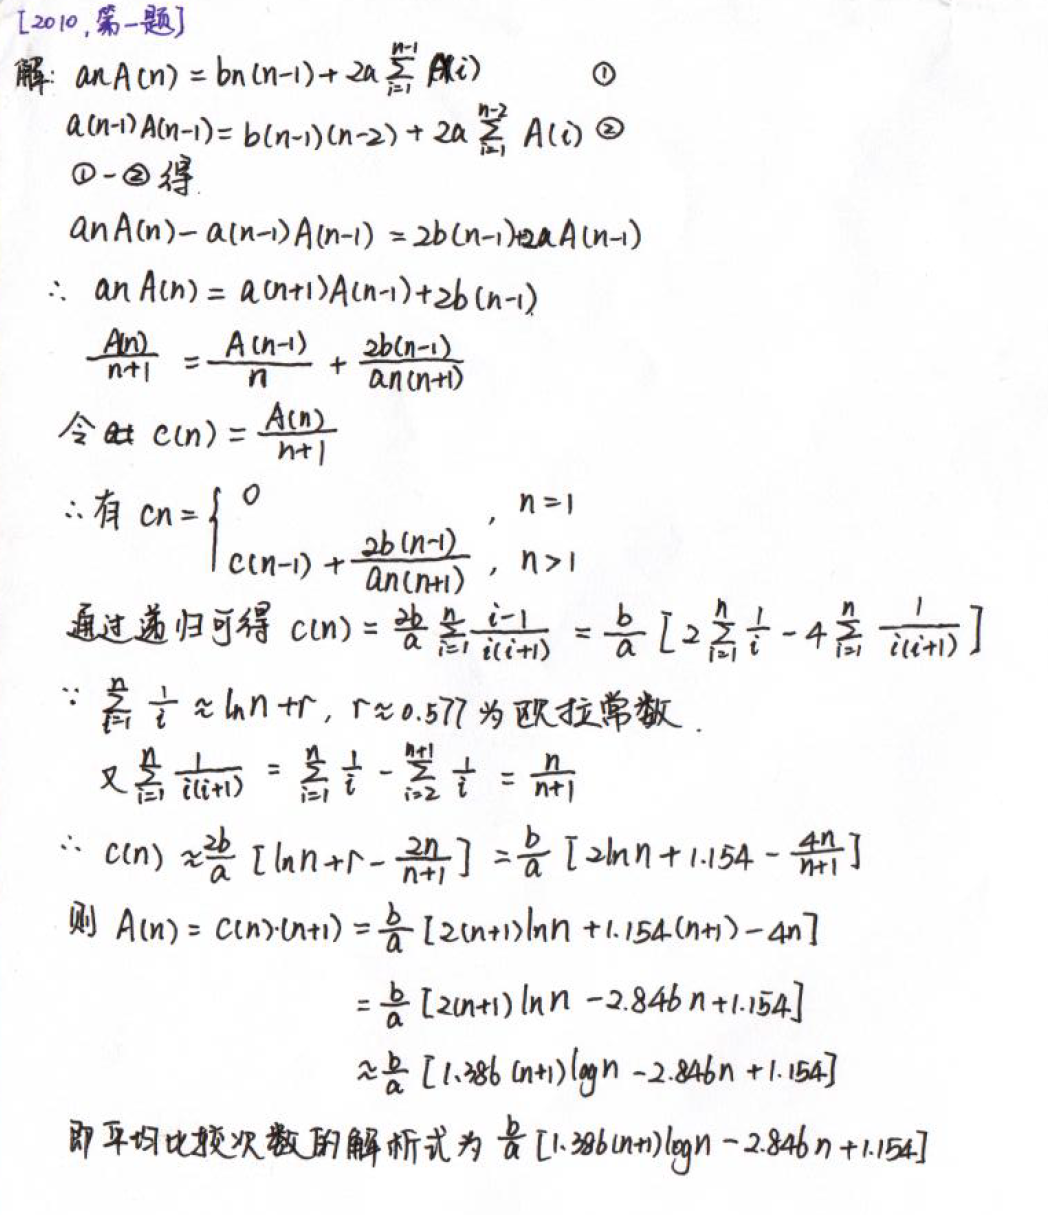 [2010,第一题]
解: anA(n) = bn(n-1) + 2a \sum_{i=1}^{n-1} A(i) ①
a(n-1)A(n-1) = b(n-1)(n-2) + 2a \sum_{i=1}^{n-2} A(i) ②
①-②得
anA(n) - a(n-1)A(n-1) = 2b(n-1)+2aA(n-1)
∴ anA(n) = a(n+1)A(n-1)+2b(n-1)
\frac{A(n)}{n+1} = \frac{A(n-1)}{n} + \frac{2b(n-1)}{an(n+1)}
令 c(n) = \frac{A(n)}{n+1}
∴有 cn = { 0 , n=1
c(n-1) + \frac{2b(n-1)}{an(n+1)} , n>1
通过递归可得 c(n) = \frac{2b}{a} \sum_{i=1}^{n} \frac{i-1}{i(i+1)} = \frac{b}{a} [2\sum_{i=1}^{n} \frac{1}{i} - 4\sum_{i=1}^{n} \frac{1}{i(i+1)}]
∵ \sum_{i=1}^{n} \frac{1}{i} ≈ ln n + r, r≈0.577 为欧拉常数.
又 \sum_{i=1}^{n} \frac{1}{i(i+1)} = \sum_{i=1}^{n} \frac{1}{i} - \sum_{i=2}^{n+1} \frac{1}{i} = \frac{n}{n+1}
∴ c(n) ≈ \frac{2b}{a} [ln n + r - \frac{2n}{n+1}] = \frac{b}{a} [2ln n + 1.154 - \frac{4n}{n+1}]
则 A(n) = c(n)·(n+1) = \frac{b}{a} [2(n+1)ln n + 1.154(n+1) - 4n]
= \frac{b}{a} [2(n+1) ln n - 2.846n + 1.154]
≈ \frac{b}{a} [1.386 (n+1) log n - 2.846n + 1.154]
即平均比较次数的解析式为 \frac{b}{a} [1.386(n+1) log n - 2.846n + 1.154]